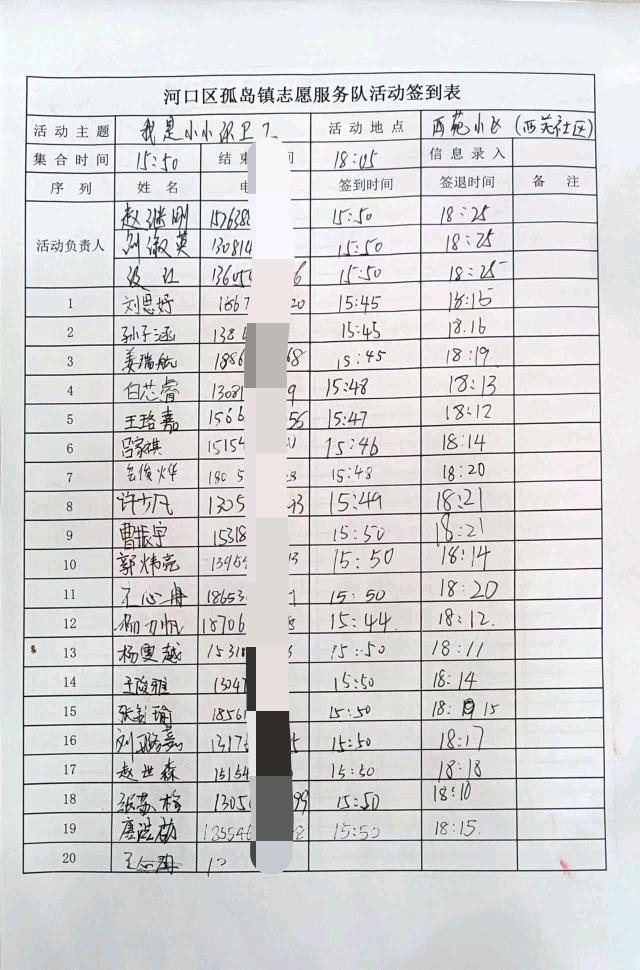 河口区孤岛镇志愿服务队活动签到表
活动主题 我是小小环卫工 活动地点 西苑小区 (西苑社区)
集合时间 15:50 结束 间 18:05 信息录入
序列 姓名 电 签到时间 签退时间 备注
活动负责人
赵继刚 15:50 18:25
刘淑英 130814 15:50 18:25
段江 6 15:50 18:25
1 刘思妤 1867 20 15:45 18:15
2 孙子涵 138 15:45 18:16
3 姜瑞航 1886 68 15:45 18:19
4 白芯睿 13081 9 15:48 18:13
5 王珞嘉 1566 56 15:47 18:12
6 吕家祺 15154 15:46 18:14
7 俊烨 1805 3 15:48 18:20
8 许少凡 1305 93 15:49 18:21
9 曹振宇 15318 15:50 18:21
10 郭炜亮 13954 13 15:50 18:14
11 心冉 18653 15:50 18:20
12 18706 8 15:44 18:12
13 杨雯越 15318 3 15:50 18:11
14 王俊雅 13047 15:50 18:14
15 张 瑜 18561 15:50 18: 15
16 刘 嘉 13173 5 15:50 18:17
17 赵世森 15154 15:50 18:18
18 张苏梓 1305 99 15:50 18:10
19 唐浩 183546 15:50 18:15
20 王